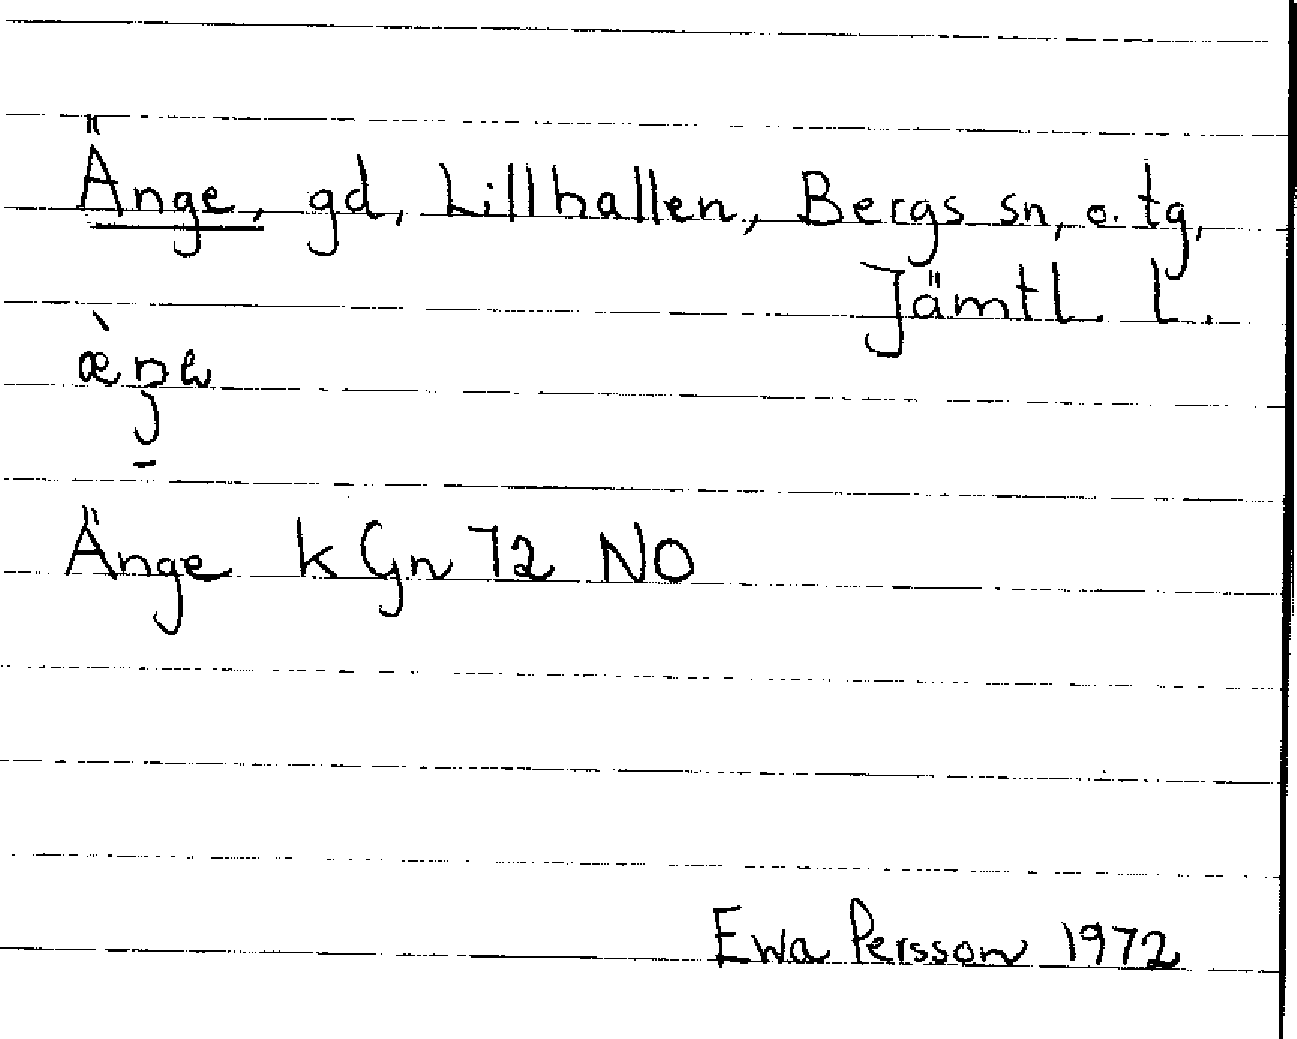 Änge, gd, Lillhallen, Bergs sn, o. tg,
Jämtl. l.
Änge k Gn 72 NO
Ewa Persson 1972